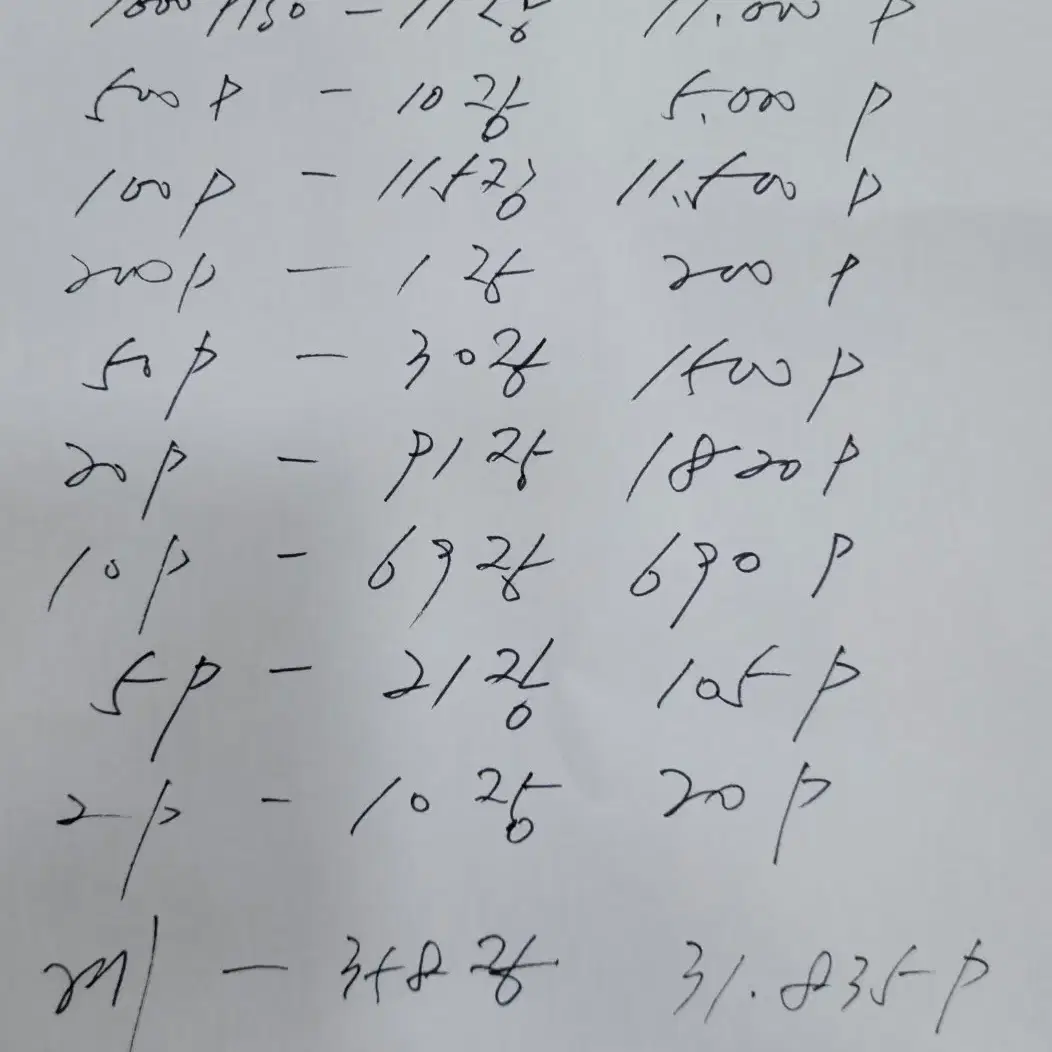 1000 peso - 11장 11.000 P
500 P - 10장 5.000 P
100 P - 115장 11.500 P
200 P - 1장 200 P
50 P - 30장 1500 P
20 P - 91장 1820 P
10 P - 69장 690 P
5 P - 21장 105 P
2 P - 10장 20 P
계 - 358장 31.835 P